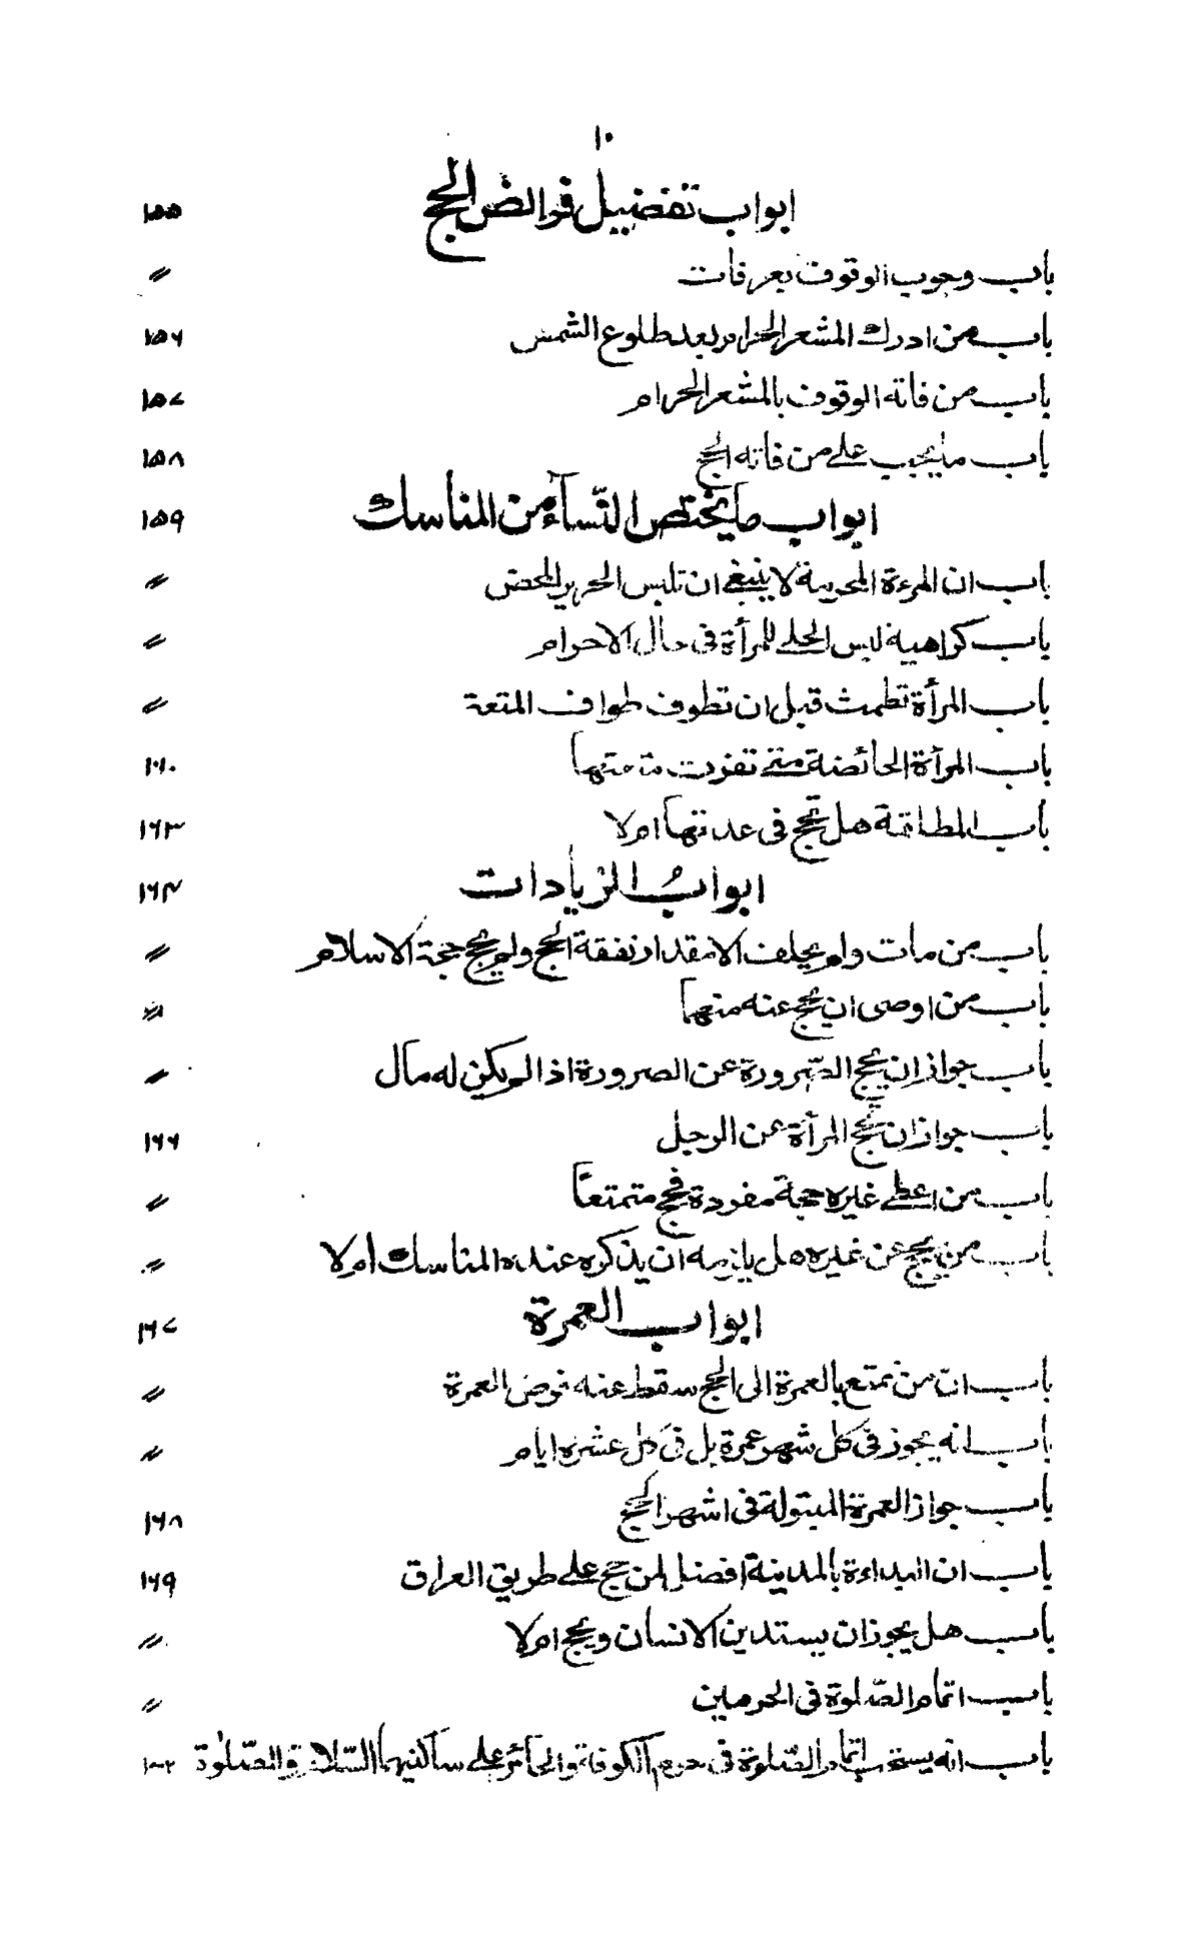 ١٠
ابواب تفضيل فرائض الحج ١٥٥
باب وجوب الوقوف بعرفات 〃
باب من ادرك المشعر الحرام بعد طلوع الشمس ١٥٦
باب من فاته الوقوف بالمشعر الحرام ١٥٧
باب ما يجب على من فاته الحج ١٥٨
ابواب ما يختص النّسآء من المناسك ١٥٩
باب ان المرءة المحرمة لا ينبغي ان تلبس الحرير المحض 〃
باب كراهية لبس الحلي للمرأة في حال الاحرام 〃
باب المرأة تطمث قبل ان تطوف طواف المتعة 〃
باب المرأة الحائضة متى تفوت متعتها ١٦٠
باب المطلقة هل تحج في عدتها ام لا ١٦٣
ابوابُ الزيادات ١٦٤
باب من مات ولم يخلف الا مقدار نفقة الحج ولم يحج حجة الاسلام 〃
باب من اوصى ان يحج عنه منهما 〃
باب جواز ان يحج الصّرورة عن الصرورة اذا لم يكن له مال 〃
باب جواز ان تحج المرأة عن الرجل ١٦٦
باب من اعطى غيره حجة مفردة فحج متمتعاً 〃
باب من يحج عن غيره هل يلزمه ان يذكره عند المناسك ام لا 〃
ابواب العمرة ١٦٧
باب انّ من تمتع بالعمرة الى الحج سقط عنه فرض العمرة 〃
باب انه يجوز في كل شهر عمرة بل في كل عشرة ايام 〃
باب جواز العمرة المبتولة في اشهر الحج ١٦٨
باب ان البداءة بالمدينة افضل لمن حج على طريق العراق ١٦٩
باب هل يجوز ان يستدين الانسان ويحج ام لا 〃
باب اتمام الصّلوة في الحرمين 〃
باب انه يستحب اتمام الصّلوة في حرم الكوفة والحائر على ساكنيهما السّلام والصّلوة